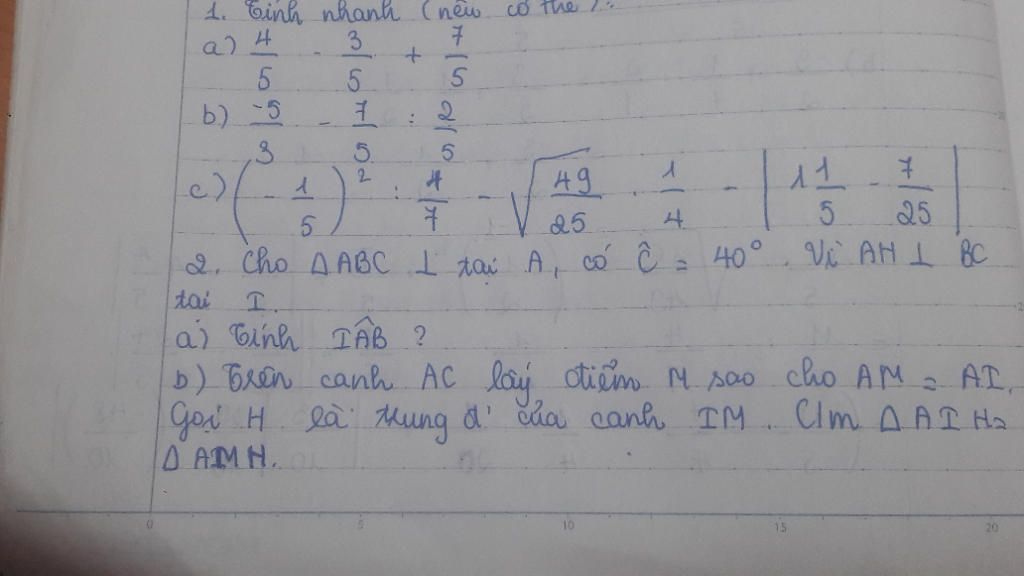 1. Tính nhanh (nếu có thể):
a) 4/5 - 3/5 + 7/5
b) -5/3 - 7/5 : 2/5
c) (- 1/5)² : 4/7 - √(49/25) . 1/4 - |1 1/5 - 7/25|
2. Cho ΔABC ⊥ tại A, có Ĉ = 40°. Vẽ AH ⊥ BC
tại I.
a) Tính IÂB ?
b) Trên cạnh AC lấy điểm M sao cho AM = AI.
Gọi H là trung đ' của cạnh IM. C/m ΔAIH =
ΔAMH.
0 5 10 15 20